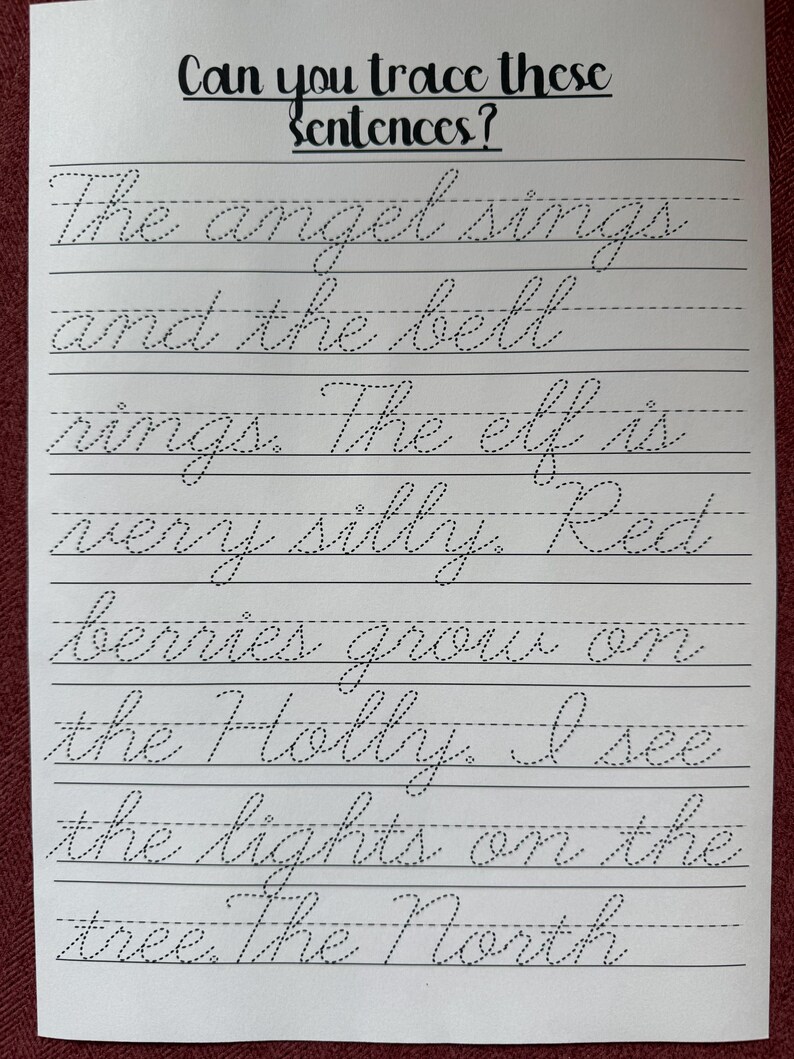 Can you trace these
sentences?
The angel sings
and the bell
rings. The elf is
very silly. Red
berries grow on
the Holly. I see
the lights on the
tree.The North